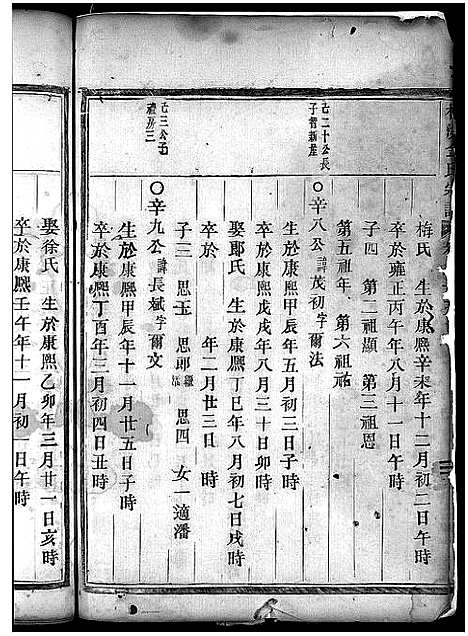 梅氏 生於康熙辛未年十二月初二日午時
卒於雍正丙午年八月十一日午時
子四 第二祖顯 第三祖恩
第五祖年 第六祖祐
己二十公長子智新產
○辛八公諱茂初字爾法
生於康熙辛亥年五月初二日子時
卒於康熙戊戌年八月三十日卯時
娶鄢氏 生於康熙丁巳年八月初七日戌時
卒於 年二月廿三日 時
子三 思玉 思耶 思四 女一適潘
己三公子禮房三
○辛九公諱長斌字爾文
生於康熙甲辰年十一月廿五日子時
卒於康熙丁酉年三月初四日丑時
娶徐氏 生於康熙乙卯年三月廿一日亥時
卒於康熙壬午年十一月初一日午時